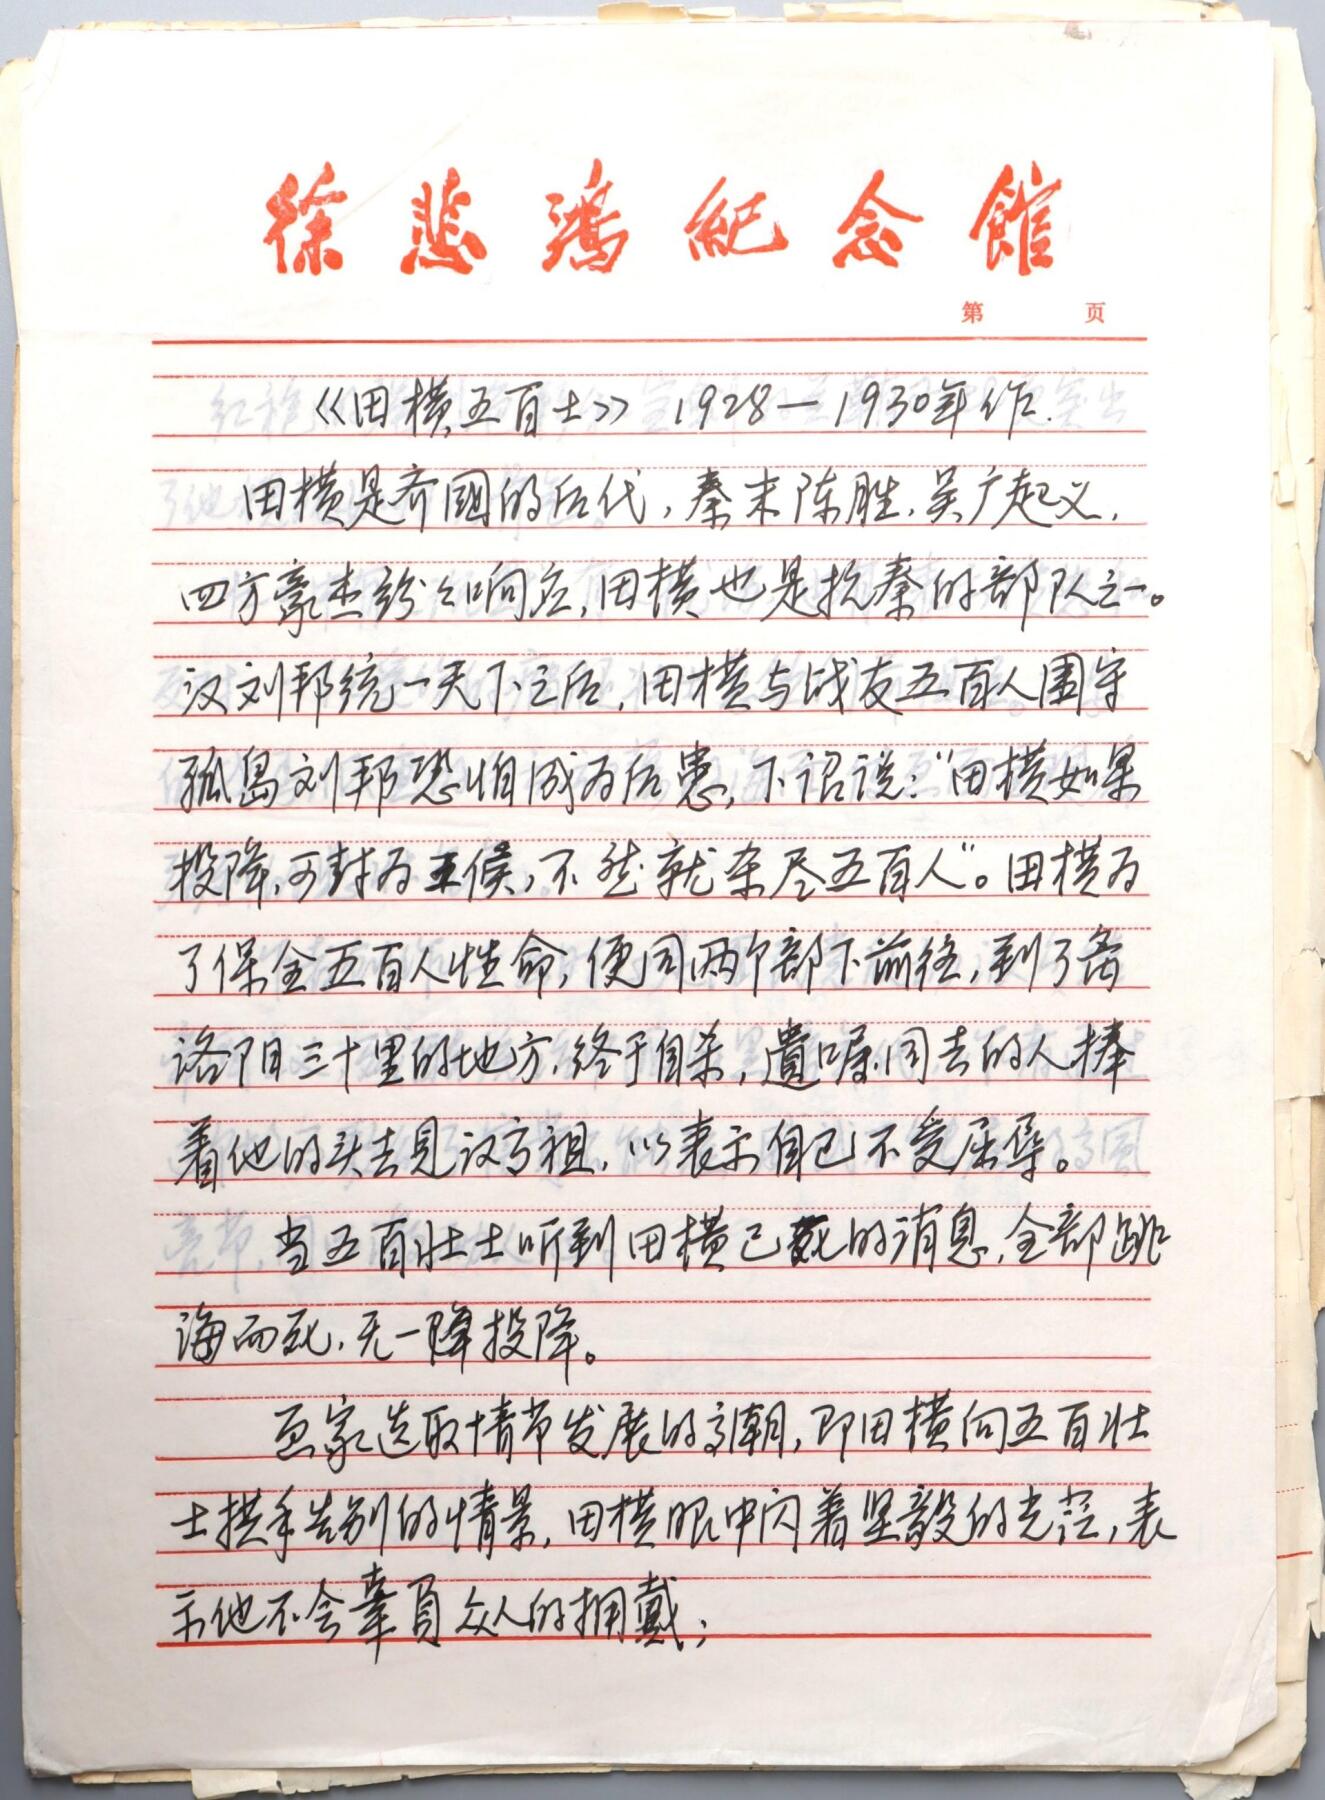 徐悲鸿纪念馆
第 页
《田横五百士》 1928—1930年作.
田横是齐國的后代，秦末陈胜，吴广起义，
四方豪杰纷々响应，田横也是抗秦的部队之一。
汉刘邦统一天下之后，田横与战友五百人围守
孤岛刘邦恐怕成为后患，下诏说：“田横如果
投降，可封为王侯，不然就杀尽五百人”。田横为
了保全五百人性命，便同两个部下前往，到了离
洛阳三十里的地方，终于自杀，遗嘱同去的人捧
着他的头去见汉高祖，以表示自己不受屈辱。
当五百壮士听到田横已死的消息，全部跳
海而死，无一降投降。
画家选取情节发展的高潮，即田横向五百壮
士拱手告别的情景，田横眼中闪着坚毅的光芒，表
示他不会辜负众人的拥戴；